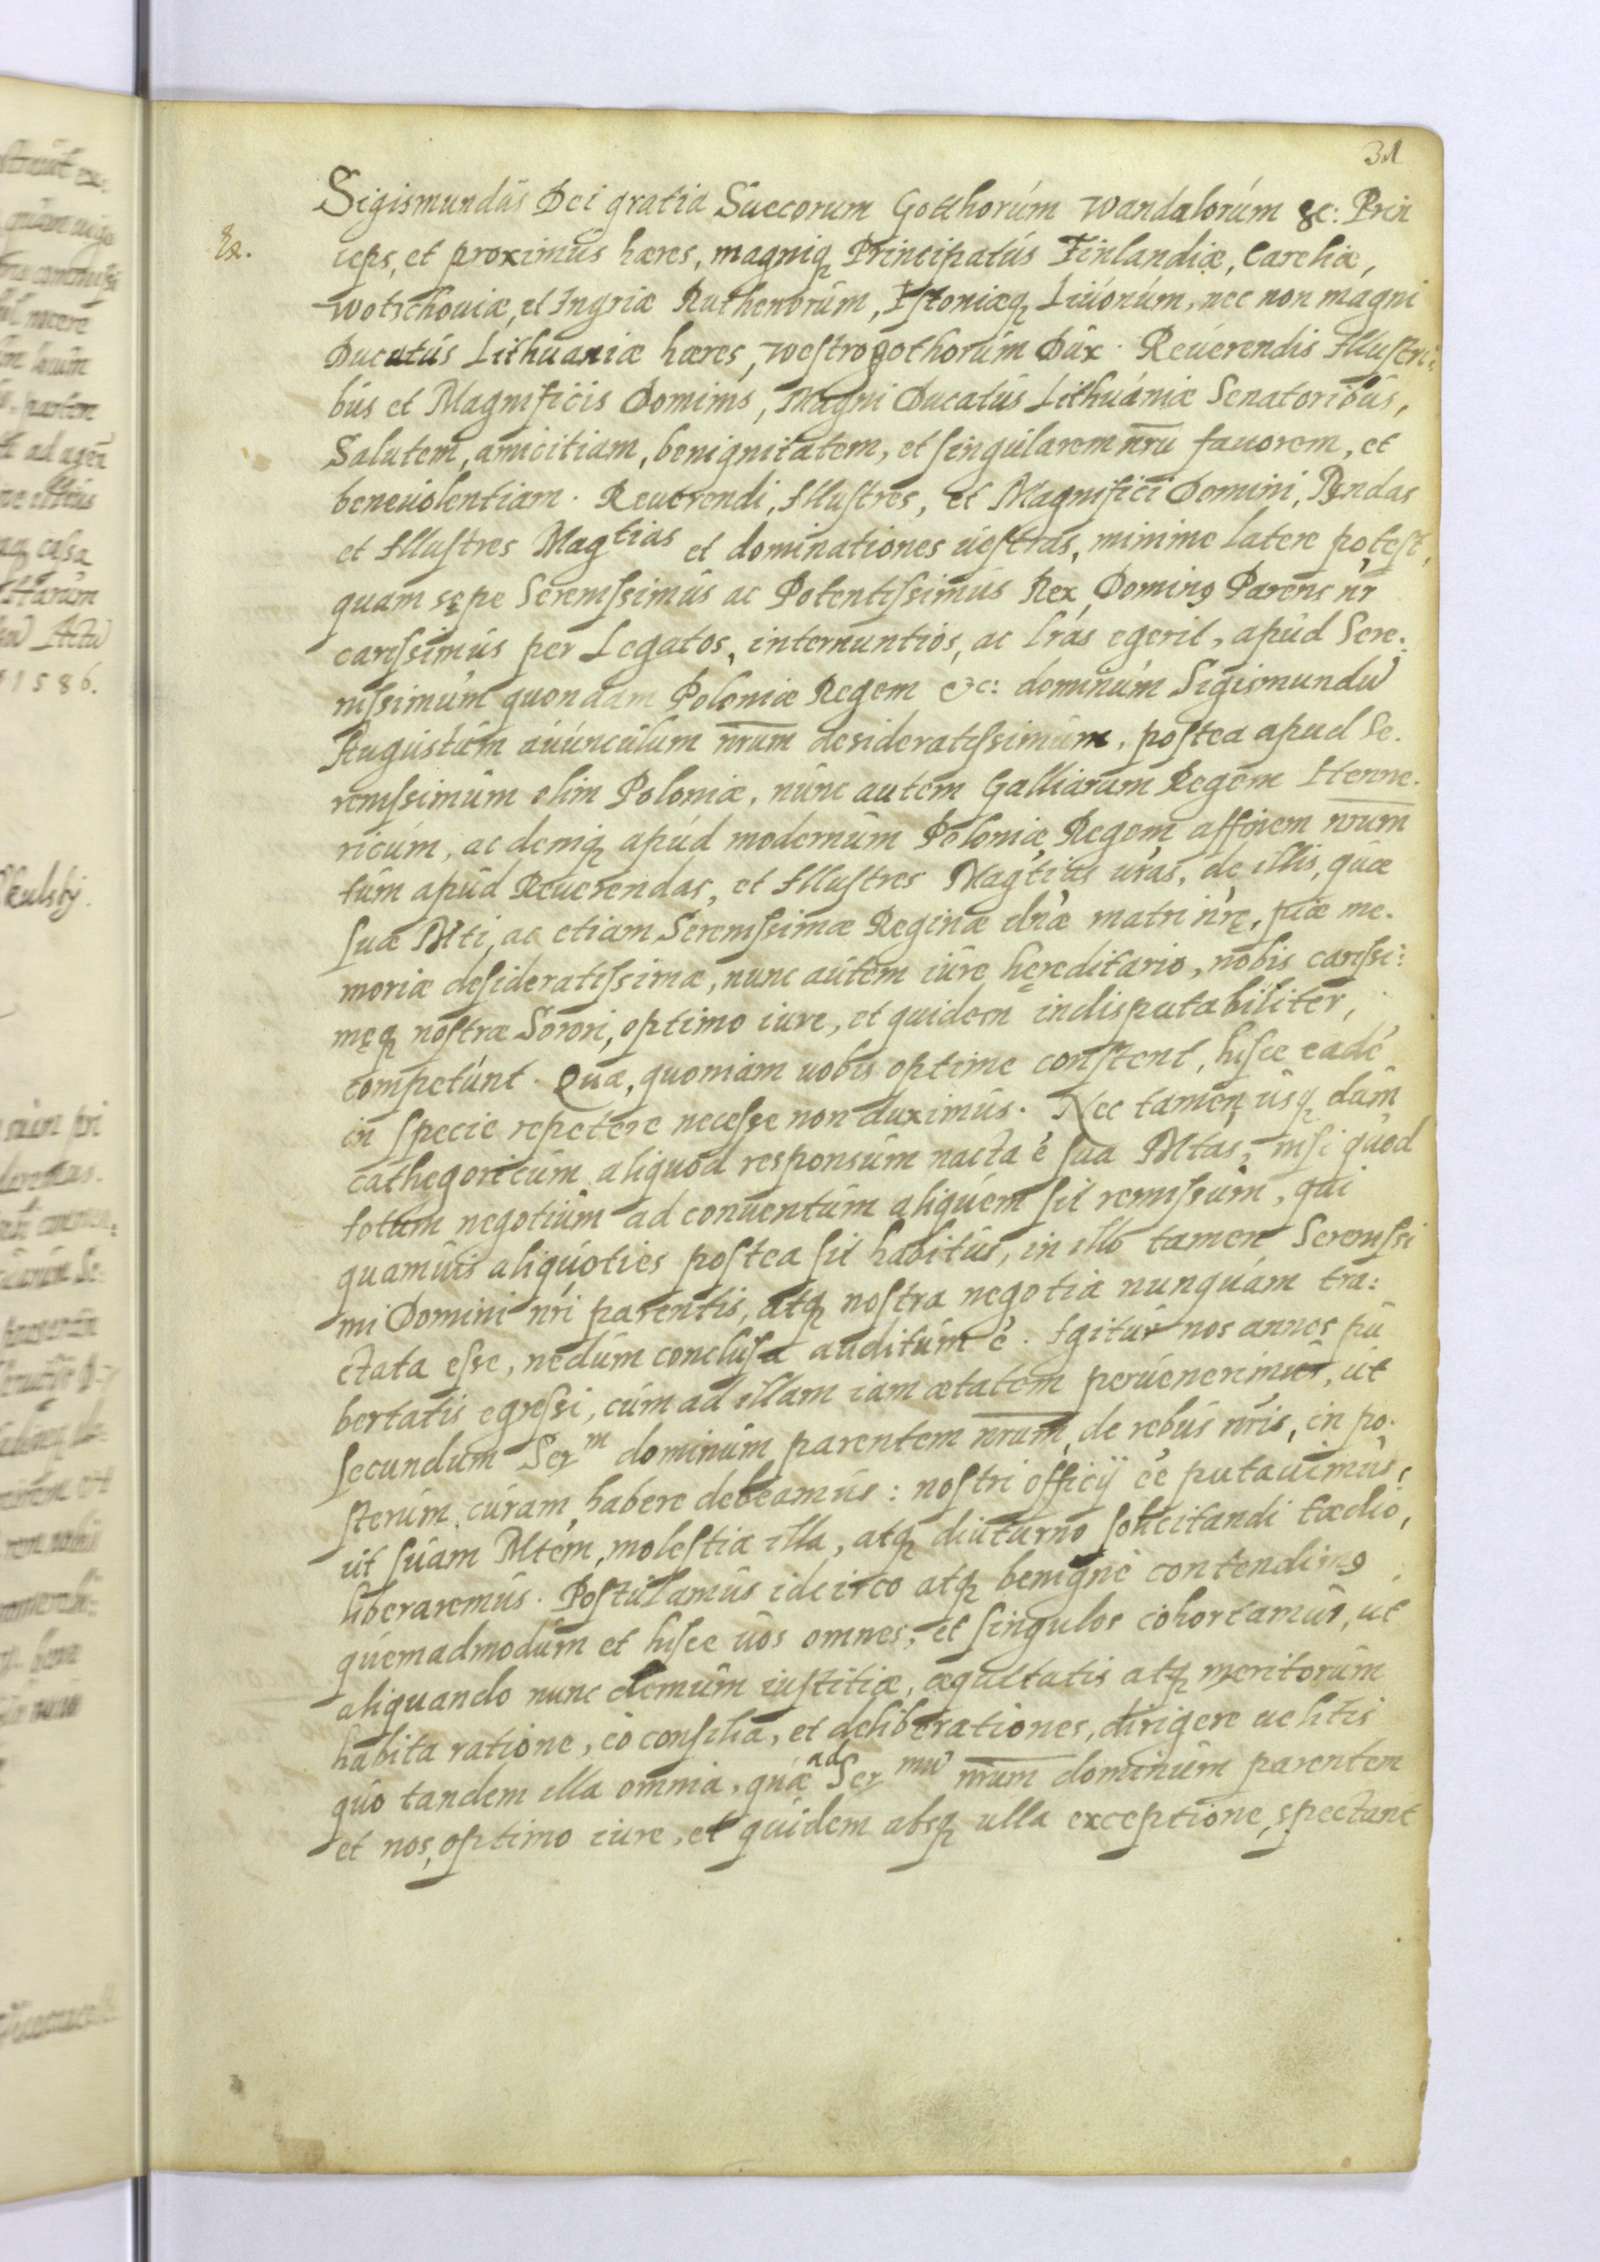 31
Sigismundus Dei gratia Suecorum Gotthorum Wandalorum &c: Prin
82.
ceps, et proximus hæres, magniq Principatus Finlandiæ, Careliæ,
Wotschouiæ, et Ingriæ Ruthenorum, Estoniæq Liuonum, nec non magni
Ducatus Lithuaniæ hæres, Westrogothorum Dux. Reuerendis Illustri:
bus et Magnificis Dominis, Magni Ducatus Lithuaniæ Senatoribus,
Salutem, amicitiam, benignitatem, et singularem nru fauorem, et
beneuolentiam. Reuerendi, Illustres, et Magnifici Domini, Rndas
et Illustres Magtias et dominationes uestras, minime latere potest,
quam sępe Serenissimus ac Potentissimus Rex, Doming Parens nr
carissimus per Legatos, internuntios, ac lras egerit, apud Sere:
nissimum quondam Poloniæ Regem &c: dominum Sigismundu
Augustum auunculum nrum desideratissimum, postea apud Se.
renissimum olim Poloniæ, nunc autem Galliarum Regem Henne.
ricum, ac deniq apud modernum Poloniæ Regem affinem nrum
tum apud Reuerendas, et Illustres Magtias uras, de illis, quæ
suæ Mti, ac etiam Serenissimæ Reginæ dnæ matri nrę, piæ me.
moriæ desideratissimæ, nunc autem iure hęreditario, nobis carissi:
męq nostræ Sorori, optimo iure, et quidem indisputabiliter,
competunt. Quæ, quoniam uobis optime constent, hisce eadé
in specie repetere necesse non duximus. Nec tamen usq dum
cathegoricum aliquod responsum nacta é sua Mtas, nisi quod
totum negotium ad conuentum aliquem sit remissum, qui
quamuis aliquoties postea sit habitus, in illo tamen Serenissi
mi Domini nri parentis, atq nostra negotia nunquam tra:
ctata esse, nedum conclusa auditum é. Igitur nos annos pu
bertatis egressi, cum ad illam iam ætatem peruenerimus, ut
secundum Serm dominum parentem nrum, de rebus nris, in po.
sterum, curam habere debeamus: nostri officij ée putauimus,
ut suam Mtem, molestia illa, atq diuturno solicitandi tædio,
liberaremus. Postulamus idcirco atq benigne contendimg
quemadmodum et hisce uos omnes, et singulos cohortamur, ut
aliquando nunc demum iustitiæ, æquitatis atq meritorum
habita ratione, eo consilia, et deliberationes, dirigere uelitis
quo tandem illa omnia, quæ ad Sermu nrum dominum parentem
et nos, optimo iure, et quidem absq ulla exceptione, spectant